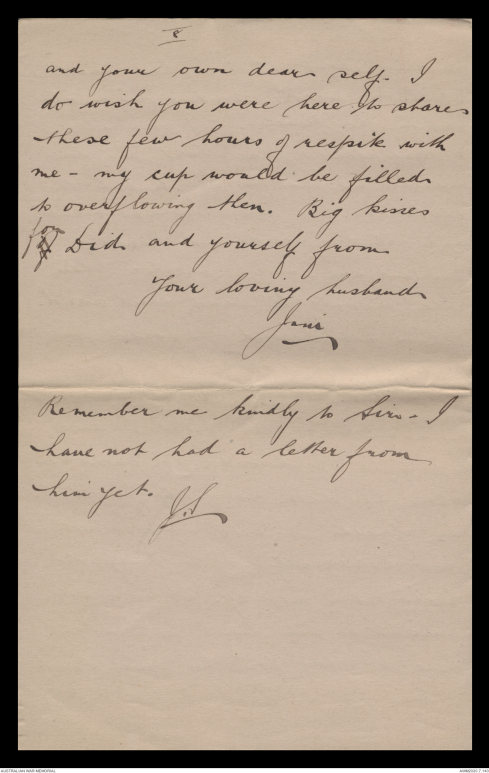 8
and your own dear self. I
do wish you were here to share
these few hours of respite with
me - my cup would be filled
to overflowing then. Big kisses
for Did and yourself from
Your loving husband
Remember me kindly to - I
have not had a letter from
him yet.
J.S
AUSTRALIAN WAR MEMORIAL